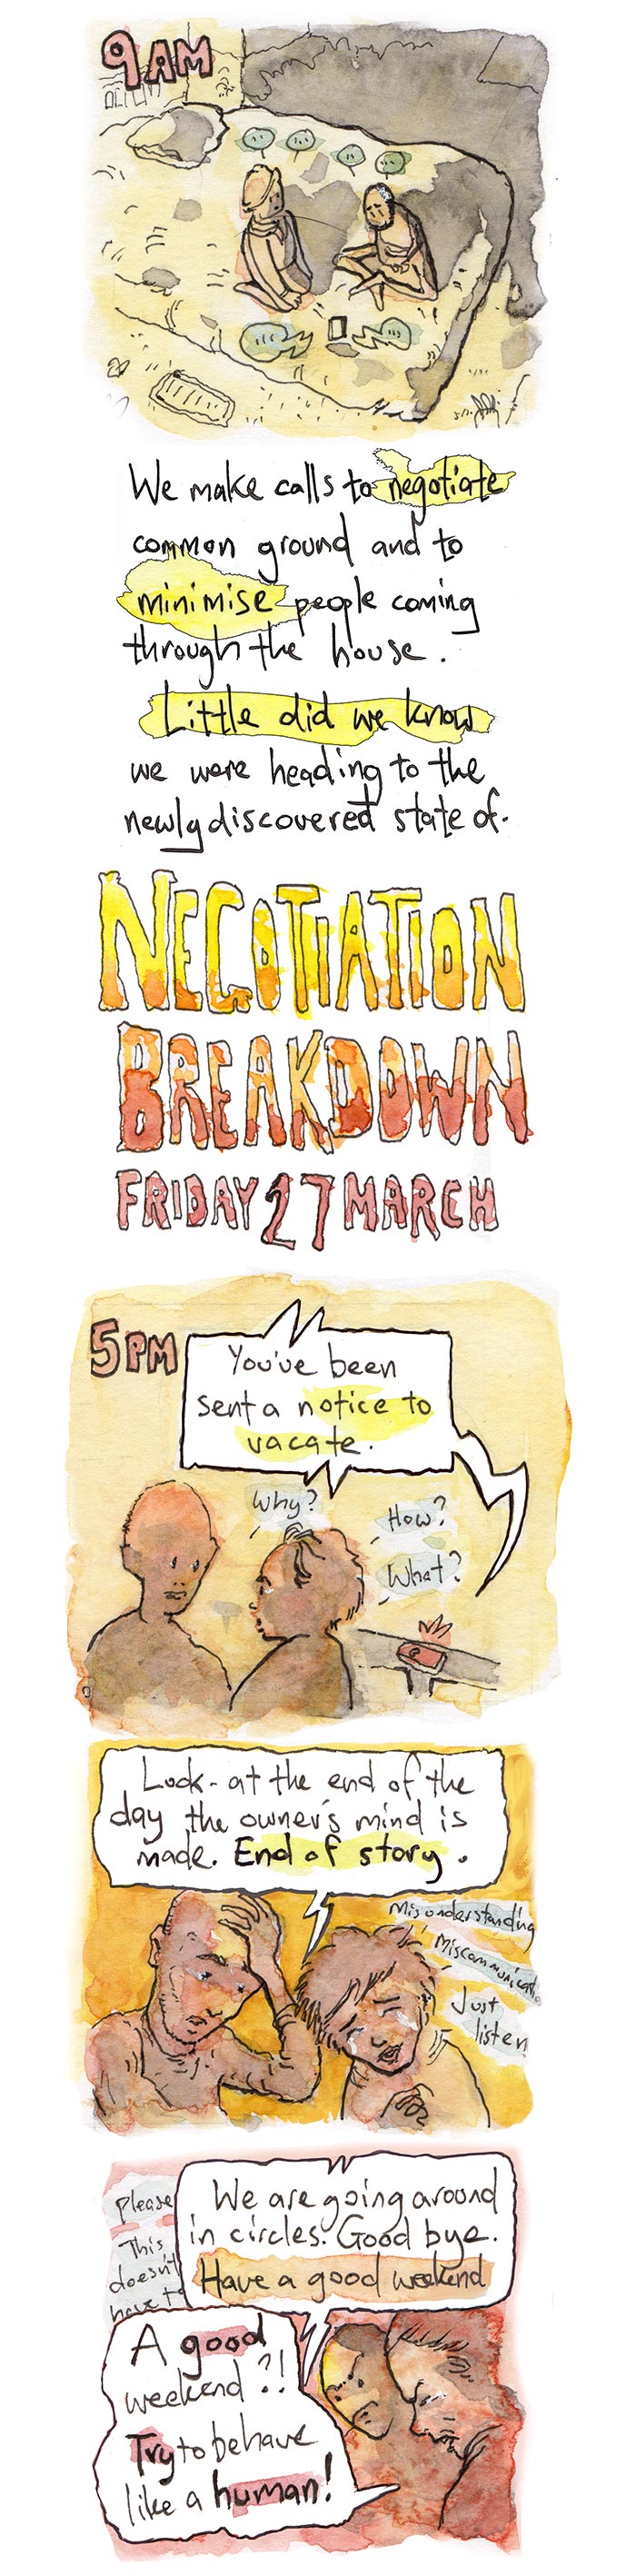 9 AM
We make calls to negotiate
common ground and to
minimise people coming
through the house.
Little did we know
we were heading to the
newly discovered state of-
NEGOTIATION
BREAKDOWN
FRIDAY 27 MARCH
5 PM
You've been
sent a notice to
vacate.
Why?
How?
What?
Look - at the end of the
day the owner's mind is
made. End of story.
Misunderstanding
Just
listen
Please
We are going around
in circles. Good bye.
Have a good weekend
This
doesn't
have to
A good
weekend?!
Try to behave
like a human!